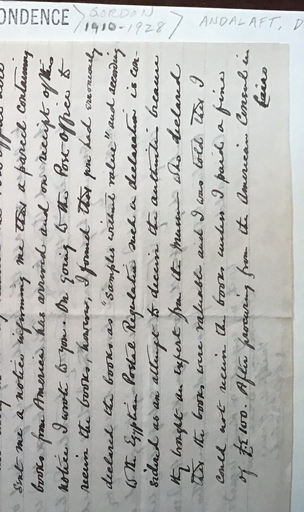 sent me a notice informing me that a parcel containing
books from America has arrived and on receipt of this
notice I wrote to you. On going to the Post Office to
receive the books, however, I found that you had erroneously
declared the books as "samples without value" and according
to the Egyptian Postal Regulation such a declaration is con-
sidered as an attempt to deceive the authorities because
they brought an expert from the Museum who declared
that the books were valuable and I was told that I
could not receive the books unless I paid a fine
of £E 100. After procuring from the American Consul in
Cairo
ONDENCE
GORDON
1910-1928
ANDALAFT. D